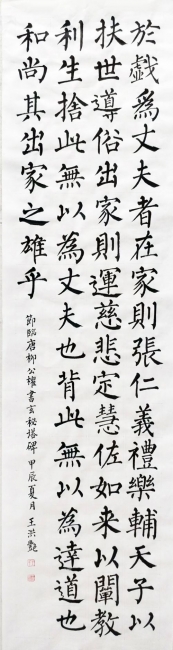 於戲爲丈夫者在家則張仁義禮樂輔天子以
扶世導俗出家則運慈悲定慧佐如来以闡教
利生捨此無以為丈夫也背此無以為達道也
和尚其出家之雄乎
節臨唐柳公權書玄秘塔碑 甲辰夏月 王洪豔